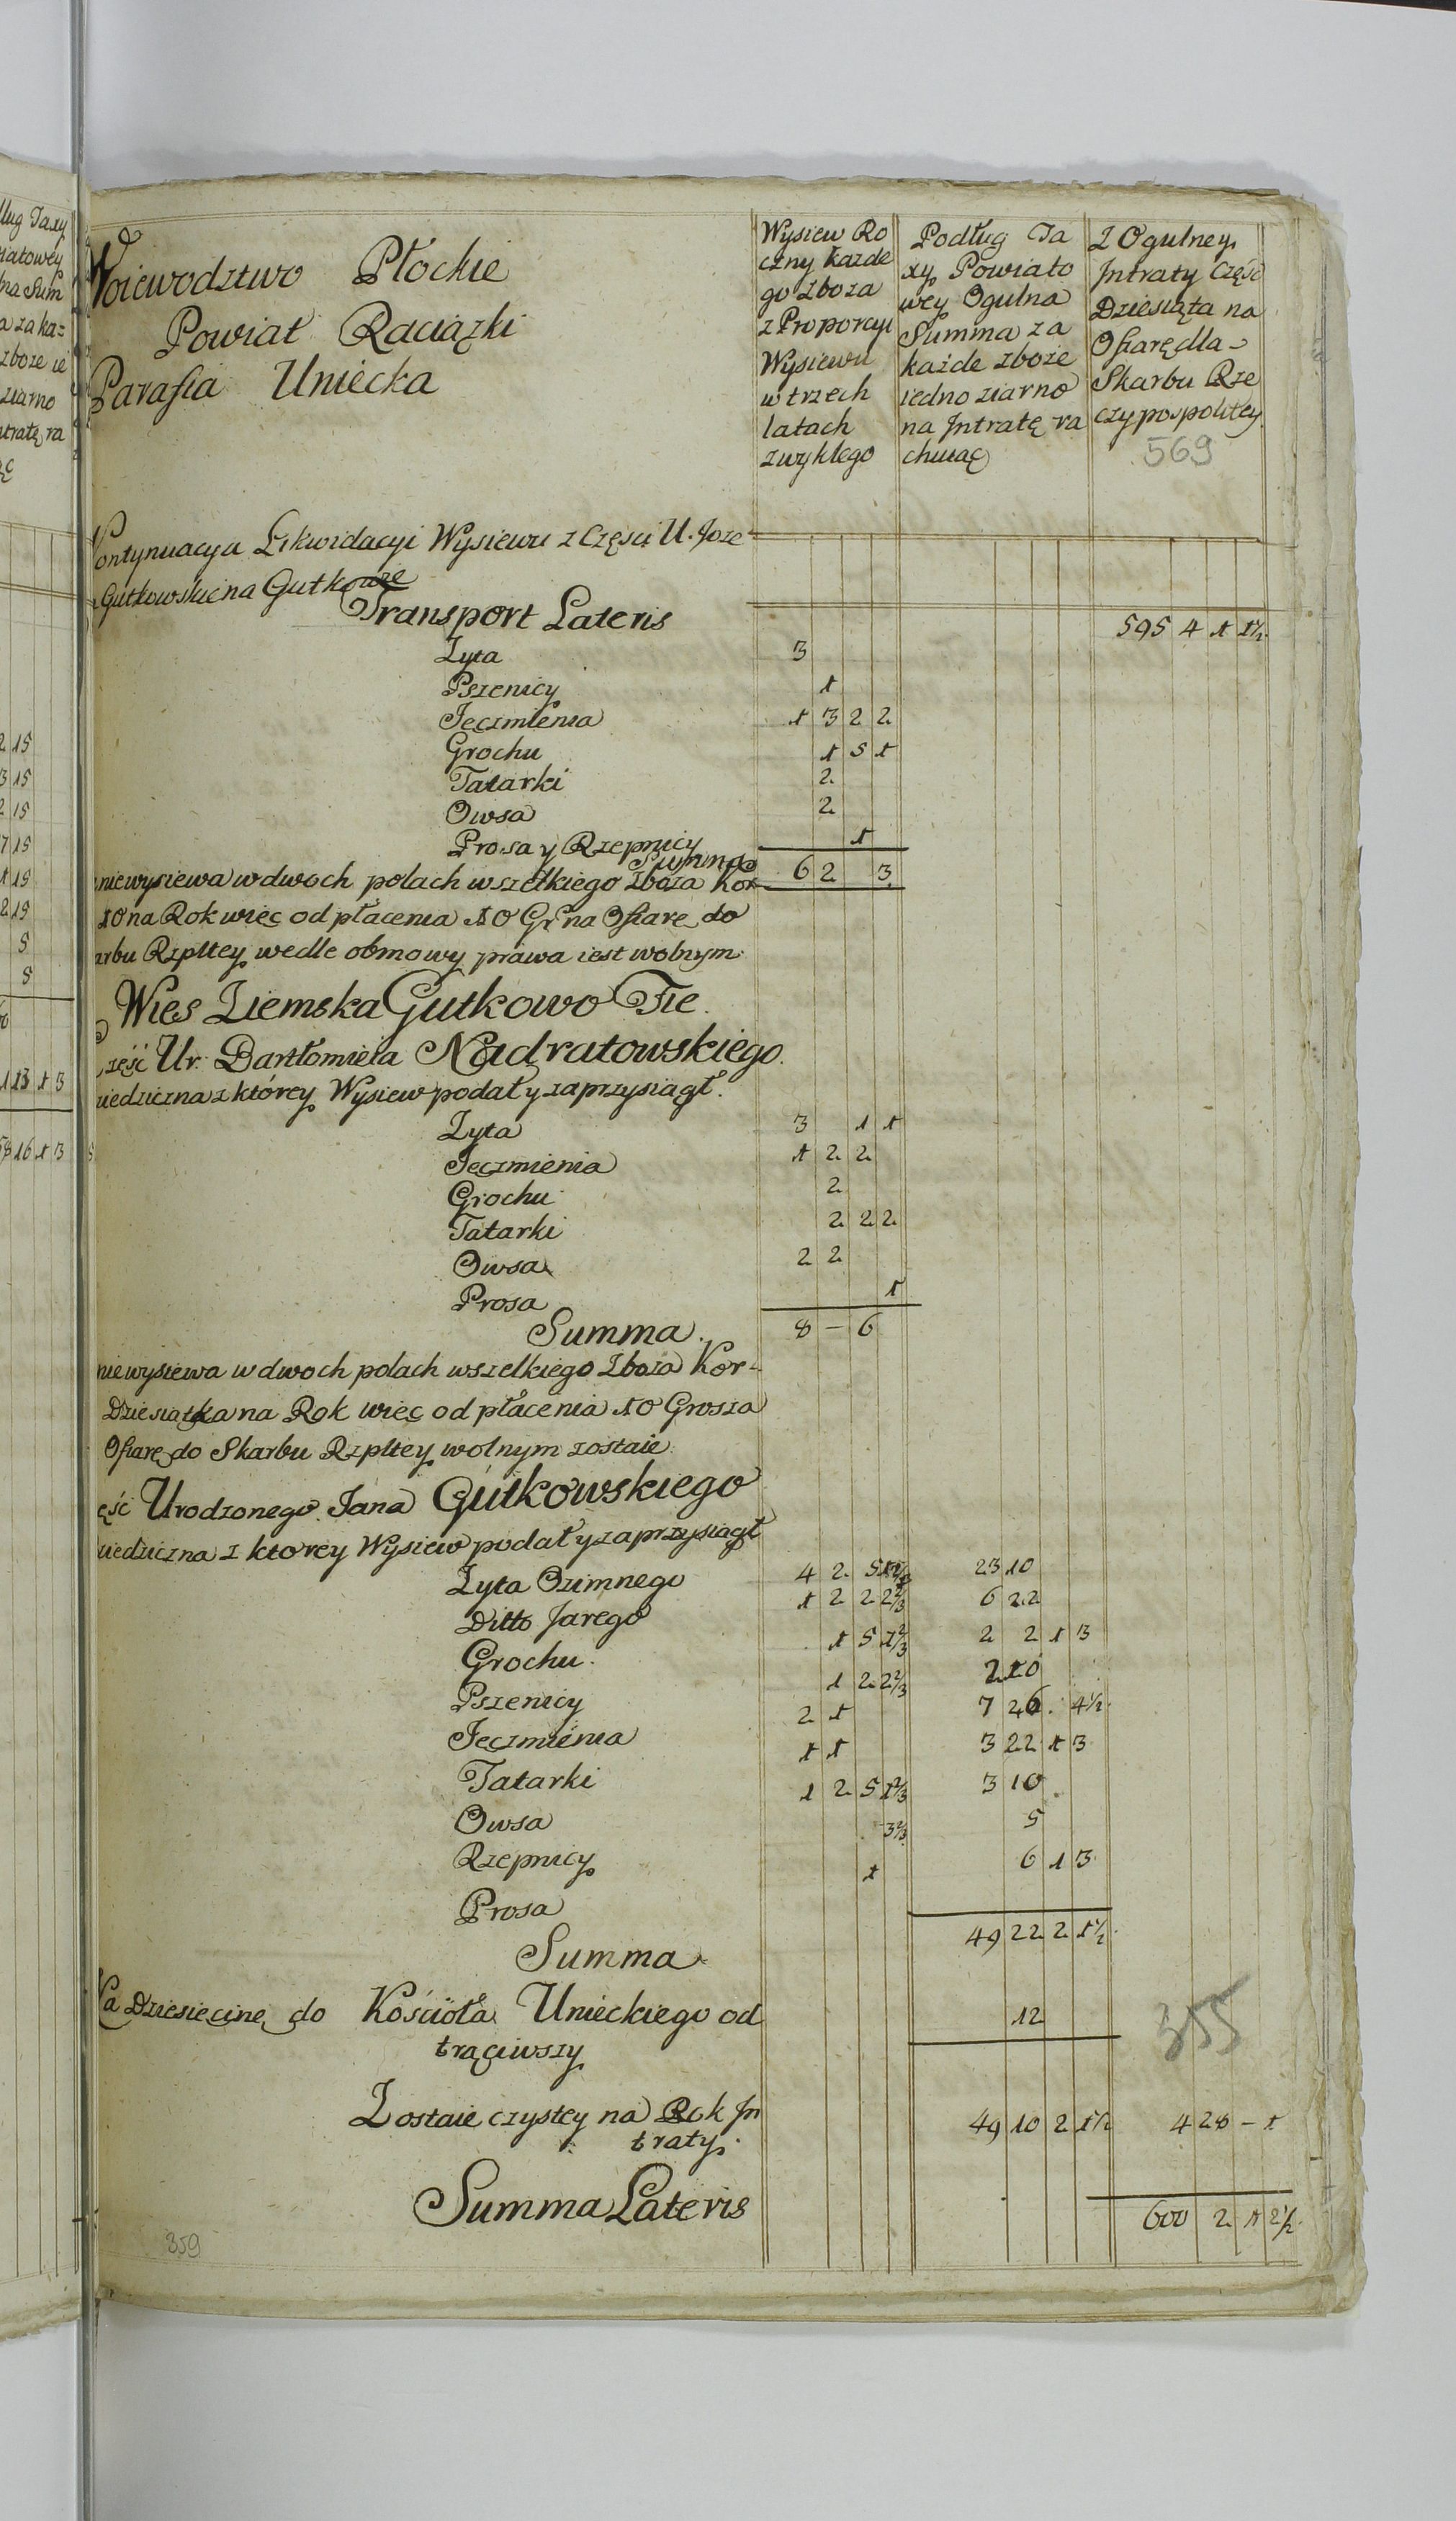 Woiewodztwo Płockie
Powiat Raciązki
Parafia Uniecka
Wysiew Ro
czny każde
go zboza
z Proporcyi
Wysiewu
w trzech
latach
zwykłego
Podług Ta
xy Powiato
wey Ogulna
Summa za
każde zboże
iedno ziarno
na Jntratę ra
chuiąc
Z Ogulney
Jntraty Część
Dziesiąta na
Ofiarę dla
Skarbu Rze
czypospolitey
569
Kontynuacya Likwidacyi Wysiewu z Części U. Joze
Gutkowskie na Gutkowie
Transport Lateris 595 4 1 1½
Zyta 3
Pszenicy 1
Jęczmienia 1 3 2 2
Grochu 1 5 1
Tatarki 2
Owsa 2
Prosa y Rzepnicy 1
Summa 6 2 3
niewysiewa w dwoch polach wszelkiego Zboza Kor
10 na Rok więc od płacenia 10 Gr na Ofiarę do
arbu Rzpltey wedle obmowy prawa iest wolnym
Wies Ziemska Gutkowo Tie
część Ur. Bartłomieia Nadratowskiego
iedziczna z którey Wysiew podał y zaprzysiągł
Zyta 3 1 1
Jęczmienia 1 2 2
Grochu 2
Tatarki 2 2 2
Owsa 2 2
Prosa 1
Summa 8 – 6
niewysiewa w dwoch polach wszelkiego Zboza Kor-
Dziesiątka na Rok więc od płacenia 10 Grosza
Ofiarę do Skarbu Rzpltey wolnym zostaie
ęść Urodzonego Jana Gutkowskiego
iedziczna z ktorey Wysiew podał y zaprzysiągł
Zyta Ozimnego 4 2 5 23 10
Ditto Jarego 1 2 2 2⅔ 6 22
Grochu 1 5 1⅔ 2 2 1 3
Pszenicy 1 2 2⅔ 2 10
Jęczmienia 2 1 7 26 4½
Tatarki 1 1 3 22 1 3
Owsa 1 2 5 1⅔ 3 10
Rzepnicy 3⅔ 5
Prosa 1 6 1 3
Summa 49 22 2 1½
Na Dziesiecinę do Kościoła Unieckiego od 12
trąciwszy
355
Zostaie czystey na Rok Jn 49 10 2 1½ 4 28 – 1
traty
Summa Lateris 600 2 1 2½
359